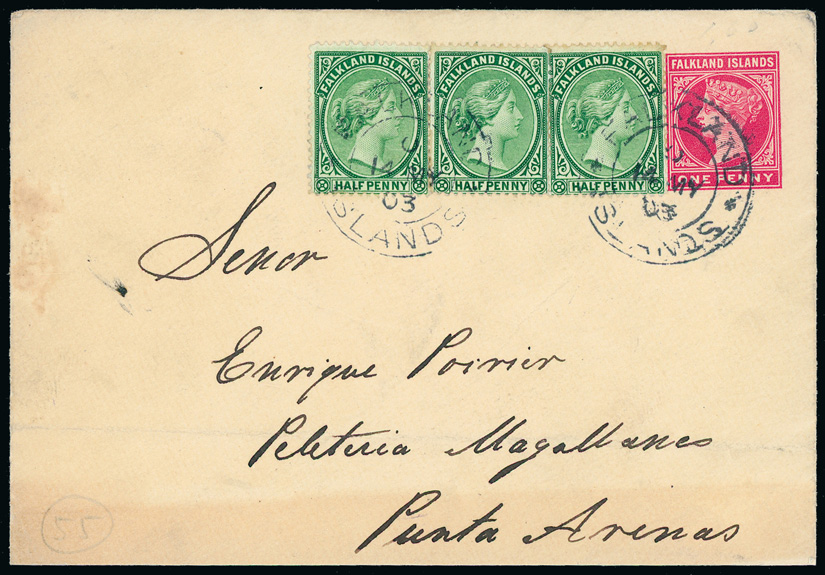 FALKLAND ISLANDS FALKLAND ISLANDS FALKLAND ISLANDS FALKLAND ISLANDS
HALF PENNY HALF PENNY HALF PENNY ONE PENNY
14
03
ISLANDS
03
Senor
Enrique Poirier
Peleteria Magallanes
Punta Arenas
55